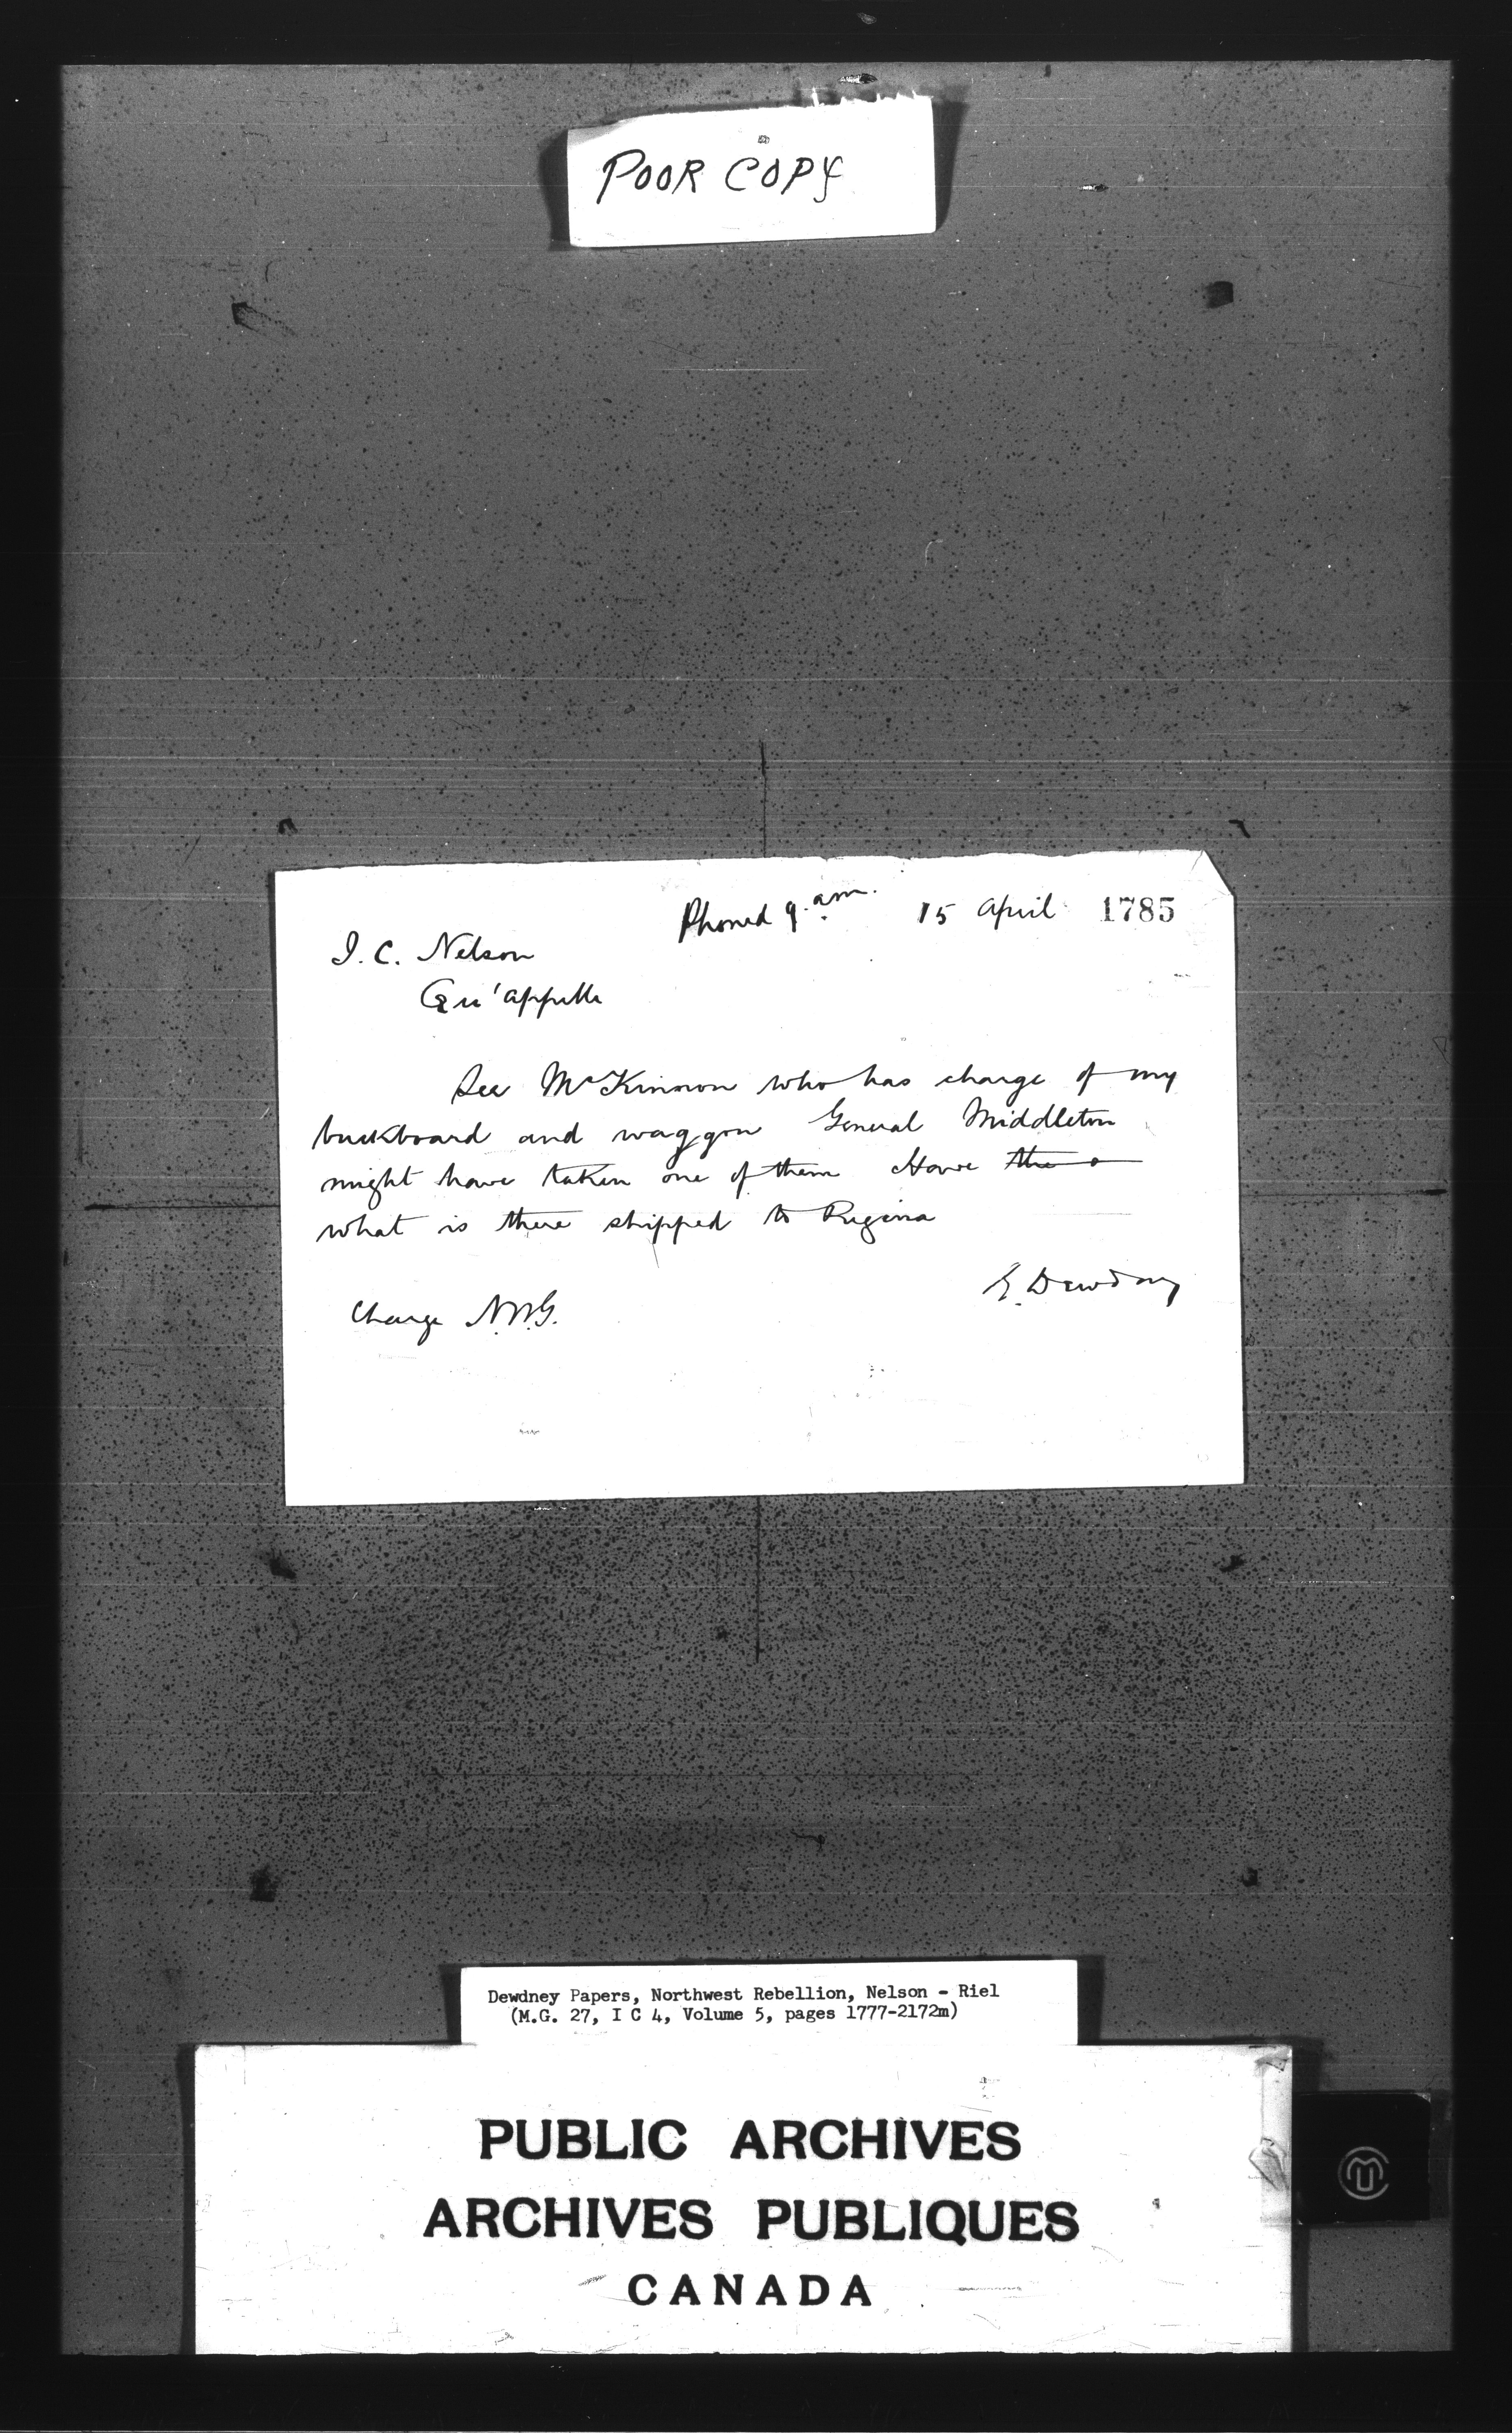 POOR COPY
Phoned 9. am. 15 April 1785
J. C. Nelson
Qu'appelle
See McKinnon who has charge of my
buckboard and waggon General Middleton
might have taken one of them Have the o
what is there shipped to Regina
E. Dewdney
Charge N.W.G.
Dewdney Papers, Northwest Rebellion, Nelson - Riel
(M.G. 27, I C 4, Volume 5, pages 1777-2172m)
PUBLIC ARCHIVES
ARCHIVES PUBLIQUES
CANADA